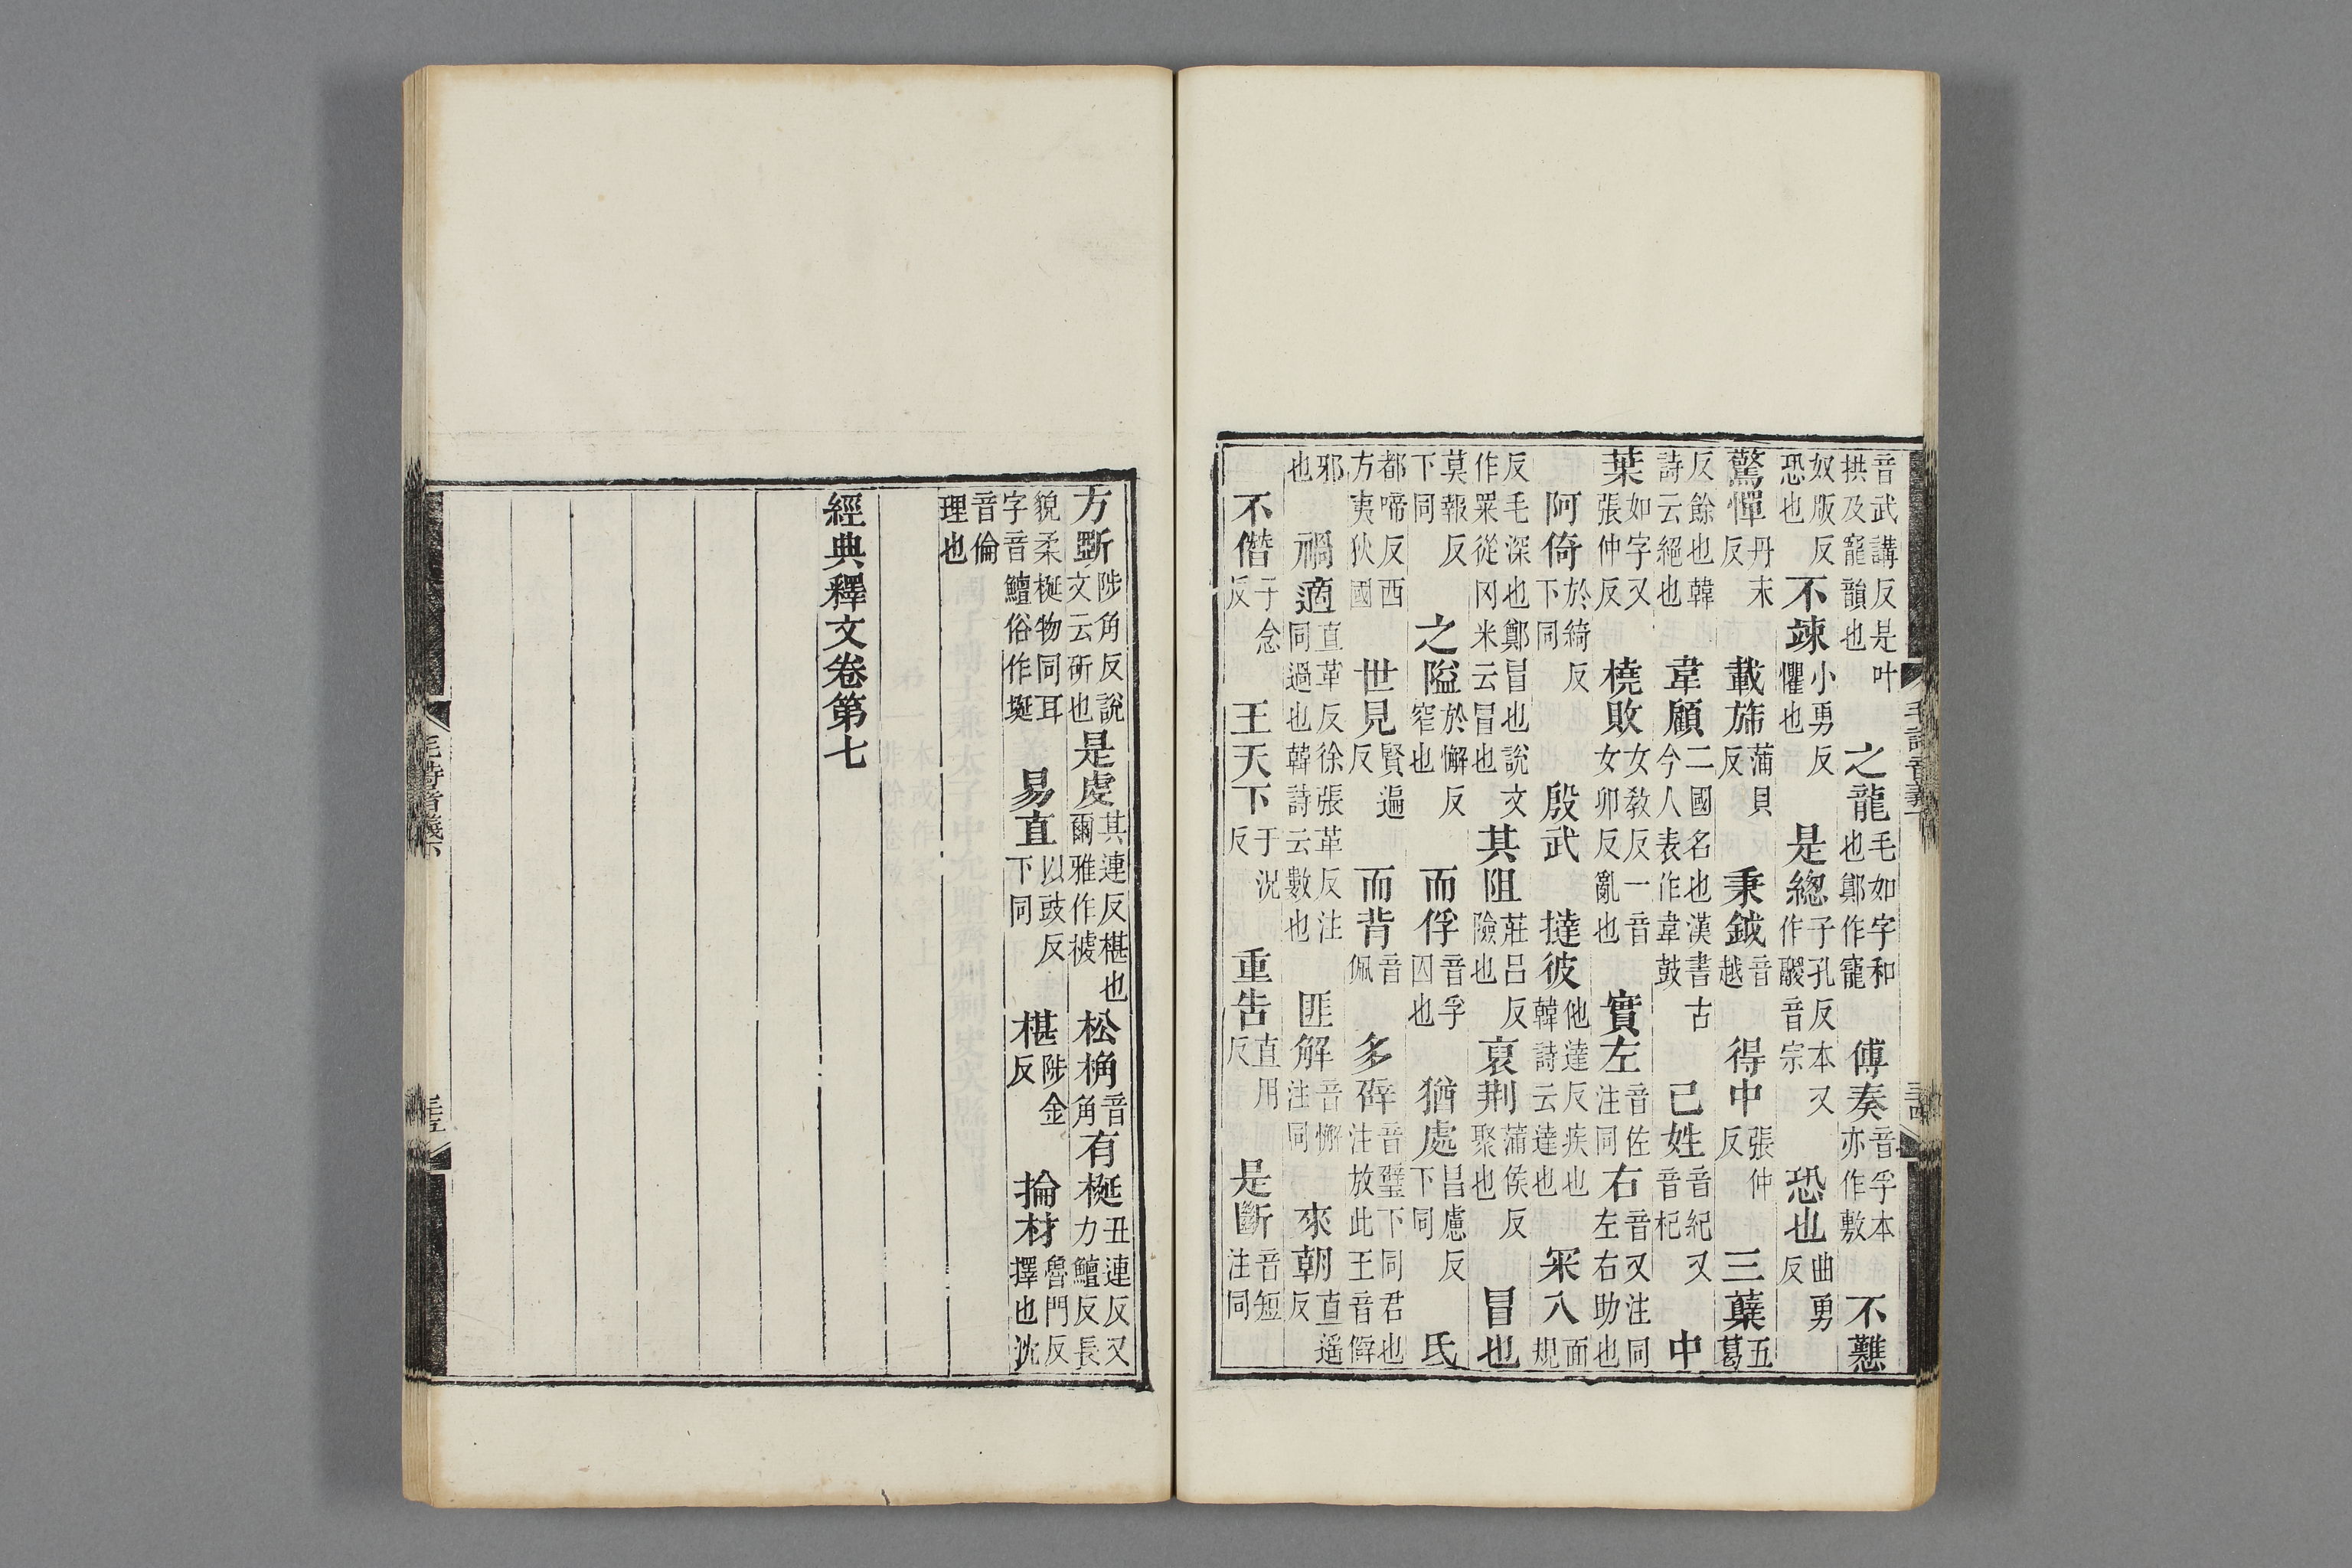 音武講反是叶拱及寵韻也之龍毛如字和也鄭作寵傅奏音孚本亦作敷不戁
奴版反恐也不竦小勇反懼也是緫子孔反本又作鬷音宗恐也曲勇反
驚憚丹末反載斾蒲貝反秉鉞音越得中張仲反三蘖五葛
反餘也韓詩云絕也韋顧二國名也漢書古今人表作韋鼓己姓音紀又音杞中
葉如字又張仲反橈敗女教反一音女卯反亂也實左音佐注同右音又注同左右助也
阿倚於綺反下同殷武撻彼他達反疾也韓詩云達也罙入面規
反毛深也鄭冒也說文作罙從冈米云冒也其阻莊呂反險也裒荆蒲侯反聚也冒也
莫報反下同之隘於懈反窄也而俘音孚囚也猶處昌慮反下同氐
都啼反西方夷狄國世見賢遍反而背音佩多辟音璧下同君也注放此王音僻
邪也禍適直革反徐張革反注同過也韓詩云數也匪解音懈注同來朝直遥反
不僭子念反王天下于況反重告直用反是斷音短注同
方斲陟角反說文云斫也是虔其連反椹也爾雅作榩松桷音角有梴丑連反又力鱣反長
貌柔梴物同耳字音鱣俗作埏易直以豉反下同椹陟金反掄材魯門反擇也沈
音倫理也
經典釋文卷第七
毛詩音義下
三五